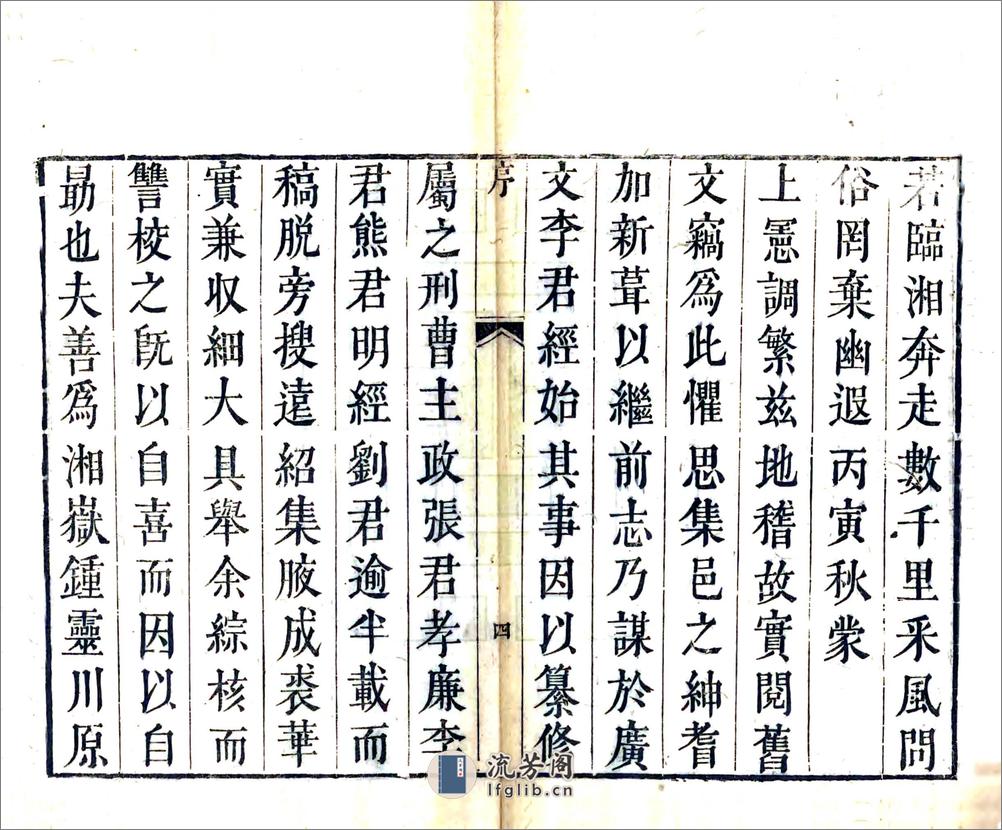 若臨湘奔走數千里釆風問
俗罔棄幽遐丙寅秋蒙
上憲調繁兹地稽故實閱舊
文竊爲此懼思集邑之紳耆
加新葺以繼前志乃謀於廣
文李君經始其事因以纂修
序
四
屬之刑曹主政張君孝廉李
君熊君明經劉君逾半載而
稿脱旁搜遠紹集腋成裘華
實兼収細大具舉余綜核而
讐校之旣以自喜而因以自
勗也夫善爲湘嶽鍾靈川原
流芳阁
lfglib.cn